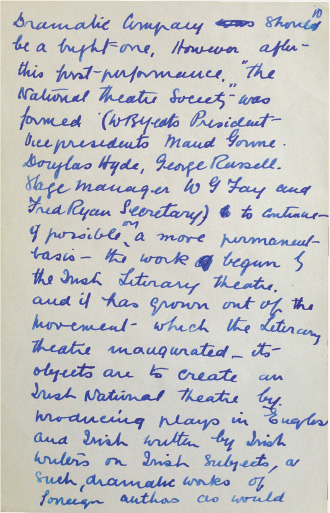 10
Dramatic Company was should
be a bright one. However after
this first performance, "The
National Theatre Society" was
formed (W B Yeats President
Vice presidents Maud Gonne.
Douglas Hyde, George Russell.
Stage Manager W G Fay and
Fred Ryan Secretary) to continue
if possible, on a more permanent
basis – the work begun by
the Irish Literary Theatre.
and it has grown out of the
movement which the Literary
Theatre inaugurated – its
objects are to create an
Irish National Theatre by
producing plays in English
and Irish written by Irish
writers on Irish subjects, or
such, dramatic works of
foreign authors as would